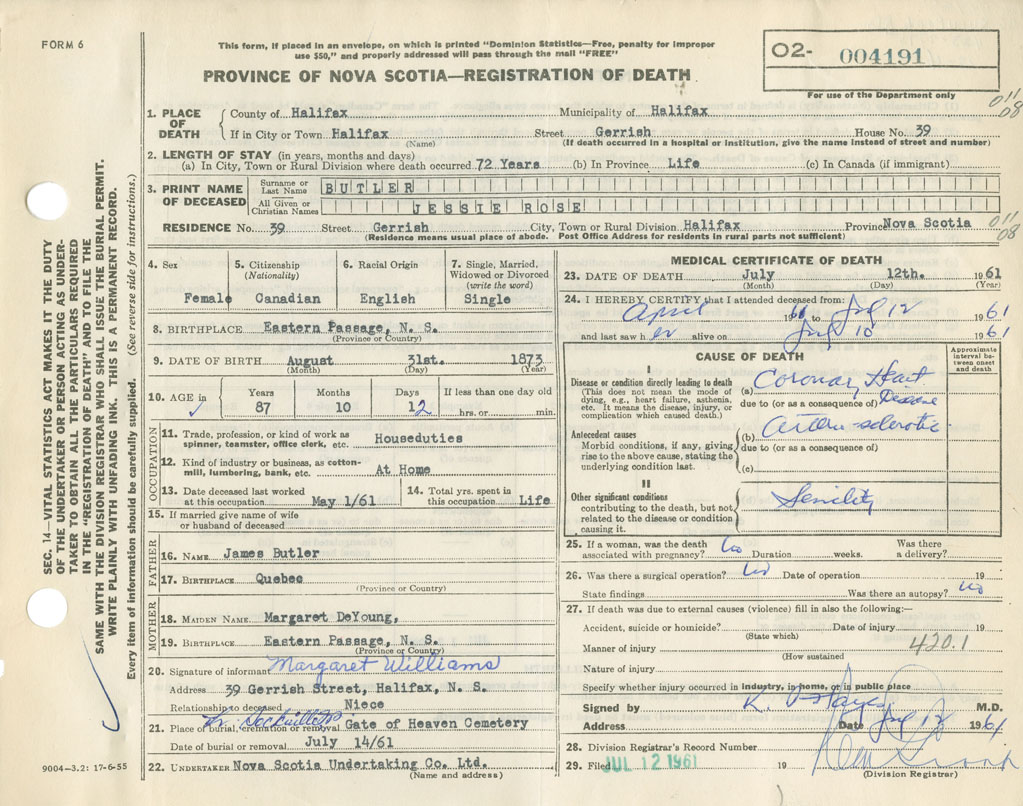 FORM 6
This form, if placed in an envelope, on which is printed "Dominion Statistics—Free, penalty for improper
use $50," and properly addressed will pass through the mail "FREE"
PROVINCE OF NOVA SCOTIA—REGISTRATION OF DEATH
O2- 004191
For use of the Department only
011
08
1. PLACE OF DEATH
County of Halifax Municipality of Halifax
If in City or Town Halifax Street Gerrish House No. 39
(Name) (If death occurred in a hospital or institution, give the name instead of street and number)
2. LENGTH OF STAY (in years, months and days)
(a) In City, Town or Rural Division where death occurred 72 Years (b) In Province Life (c) In Canada (if immigrant)
3. PRINT NAME OF DECEASED
Surname or Last Name BUTLER
All Given or Christian Names JESSIE ROSE
RESIDENCE No. 39 Street Gerrish City, Town or Rural Division Halifax Province Nova Scotia
011
08
(Residence means usual place of abode. Post Office Address for residents in rural parts not sufficient)
4. Sex
Female
5. Citizenship (Nationality)
Canadian
6. Racial Origin
English
7. Single, Married, Widowed or Divorced (write the word)
Single
8. BIRTHPLACE Eastern Passage, N. S.
(Province or Country)
9. DATE OF BIRTH August 31st. 1873
(Month) (Day) (Year)
10. AGE in Years Months Days If less than one day old
87 10 12 hrs. or min.
OCCUPATION
11. Trade, profession, or kind of work as
spinner, teamster, office clerk, etc. Houseduties
12. Kind of industry or business, as cotton-
mill, lumbering, bank, etc. At Home
13. Date deceased last worked
at this occupation May 1/61
14. Total yrs. spent in
this occupation Life
15. If married give name of wife
or husband of deceased
FATHER
16. NAME James Butler
17. BIRTHPLACE Quebec
(Province or Country)
MOTHER
18. MAIDEN NAME Margaret DeYoung,
19. BIRTHPLACE Eastern Passage, N. S.
(Province or Country)
20. Signature of informant Margaret Williams
Address 39 Gerrish Street, Halifax, N. S.
Relationship to deceased Niece
21. Place of burial, cremation or removal Gate of Heaven Cemetery
Date of burial or removal July 14/61
22. UNDERTAKER Nova Scotia Undertaking Co. Ltd.
(Name and address)
MEDICAL CERTIFICATE OF DEATH
23. DATE OF DEATH July 12th. 1961
(Month) (Day) (Year)
24. I HEREBY CERTIFY that I attended deceased from:
April 1961 to July 12 1961
and last saw her alive on July 10 1961
CAUSE OF DEATH
Approximate interval between onset and death
I
Disease or condition directly leading to death
(This does not mean the mode of
dying, e.g., heart failure, asthenia,
etc. It means the disease, injury, or
complication which caused death.)
(a) Coronary Heart
due to (or as a consequence of) Disease
Antecedent causes
Morbid conditions, if any, giving
rise to the above cause, stating the
underlying condition last.
(b) Arterio-sclerotic
due to (or as a consequence of)
(c)
II
Other significant conditions
contributing to the death, but not
related to the disease or condition
causing it.
Senility
25. If a woman, was the death No Was there
associated with pregnancy? Duration weeks. a delivery?
26. Was there a surgical operation? No Date of operation 19
State findings Was there an autopsy? No
27. If death was due to external causes (violence) fill in also the following:—
Accident, suicide or homicide? Date of injury 19
(State which)
Manner of injury 420.1
(How sustained
Nature of injury
Specify whether injury occurred in industry, in home, or in public place
Signed by K. Hayes M.D.
Address Date July 12 1961
28. Division Registrar's Record Number
29. Filed JUL 12 1961 19
(Division Registrar)
SEC. 14—VITAL STATISTICS ACT MAKES IT THE DUTY
OF THE UNDERTAKER OR PERSON ACTING AS UNDER-
TAKER TO OBTAIN ALL THE PARTICULARS REQUIRED
IN THE "REGISTRATION OF DEATH" AND TO FILE THE
SAME WITH THE DIVISION REGISTRAR WHO SHALL ISSUE THE BURIAL PERMIT.
WRITE PLAINLY WITH UNFADING INK. THIS IS A PERMANENT RECORD.
Every item of information should be carefully supplied. (See reverse side for instructions.)
9004-3.2: 17-6-55